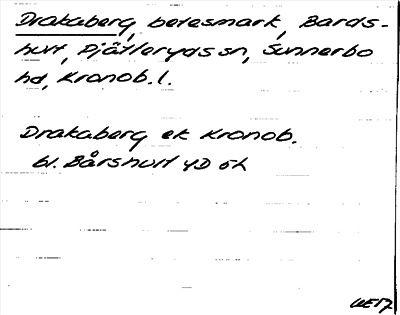 Drakaberg, betesmark, Bards-
hult, Pjätteryds sn, Sunnerbo
hd, Kronob. l.
Drakaberg ek Kronob.
bl. Bårshult 4D 6h